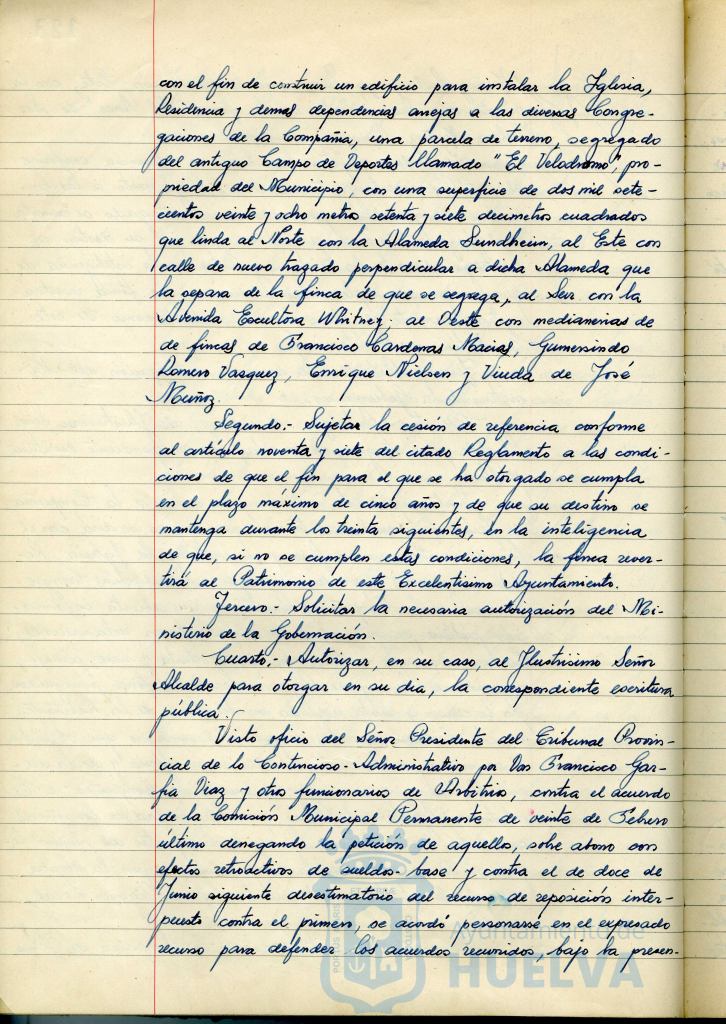 con el fin de construir un edificio para instalar la Iglesia,
Residencia y demas dependencias anejas a las diversas Congre-
gaciones de la Compañia, una parcela de terreno, segregado
del antiguo Campo de Deportes llamado "El Velodromo", pro-
piedad del Municipio, con una superficie de dos mil sete-
cientos veinte y ocho metros setenta y siete decimetros cuadrados
que linda al Norte con la Alameda Sundheim, al Este con
calle de nuevo trazado perpendicular a dicha Alameda que
la separa de la finca de que se segrega, al Sur con la
Avenida Escultora Whitney; al Oeste con medianerias de
de fincas de Francisco Cardenas Macias, Gumersindo
Romero Vasquez, Enrique Nielsen y Viuda de José
Muñoz.
Segundo.- Sujetar la cesión de referencia conforme
al artículo noventa y siete del citado Reglamento a las condi-
ciones de que el fin para el que se ha otorgado se cumpla
en el plazo máximo de cinco años y de que su destino se
mantenga durante los treinta siguientes, en la inteligencia
de que, si no se cumplen estas condiciones, la finca rever-
tirá al Patrimonio de este Excelentisimo Ayuntamiento.
Tercero.- Solicitar la necesaria autorización del Mi-
nisterio de la Gobernación.
Cuarto.- Autorizar, en su caso, al Ilustrisimo Señor
Alcalde para otorgar en su dia, la correspondiente escritura
pública.
Visto oficio del Señor Presidente del Tribunal Provin-
cial de lo Contencioso-Administrativo por Don Francisco Gar-
fia Diaz y otros funcionarios de Arbitrios, contra el acuerdo
de la Comisión Municipal Permanente de veinte de Febrero
último denegando la petición de aquellos, sobre abono con
efectos retroactivos de sueldos-base y contra el de doce de
Junio siguiente desestimatorio del recurso de reposición inter-
puesto contra el primero, se acordó personarse en el expresado
recurso para defender los acuerdos recurridos, bajo la presen-
Ayuntamiento de
HUELVA